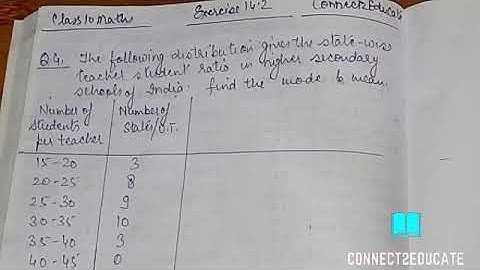 Class 10 Maths
Exercise 14.2
Connect2Educate
Q.4. The following distribution gives the state-wise
teacher student ratio in higher secondary
schools of India. find the mode & mean.
Number of Students per teacher
Number of States/U.T.
15-20 3
20-25 8
25-30 9
30-35 10
35-40 3
40-45 0
CONNECT2EDUCATE